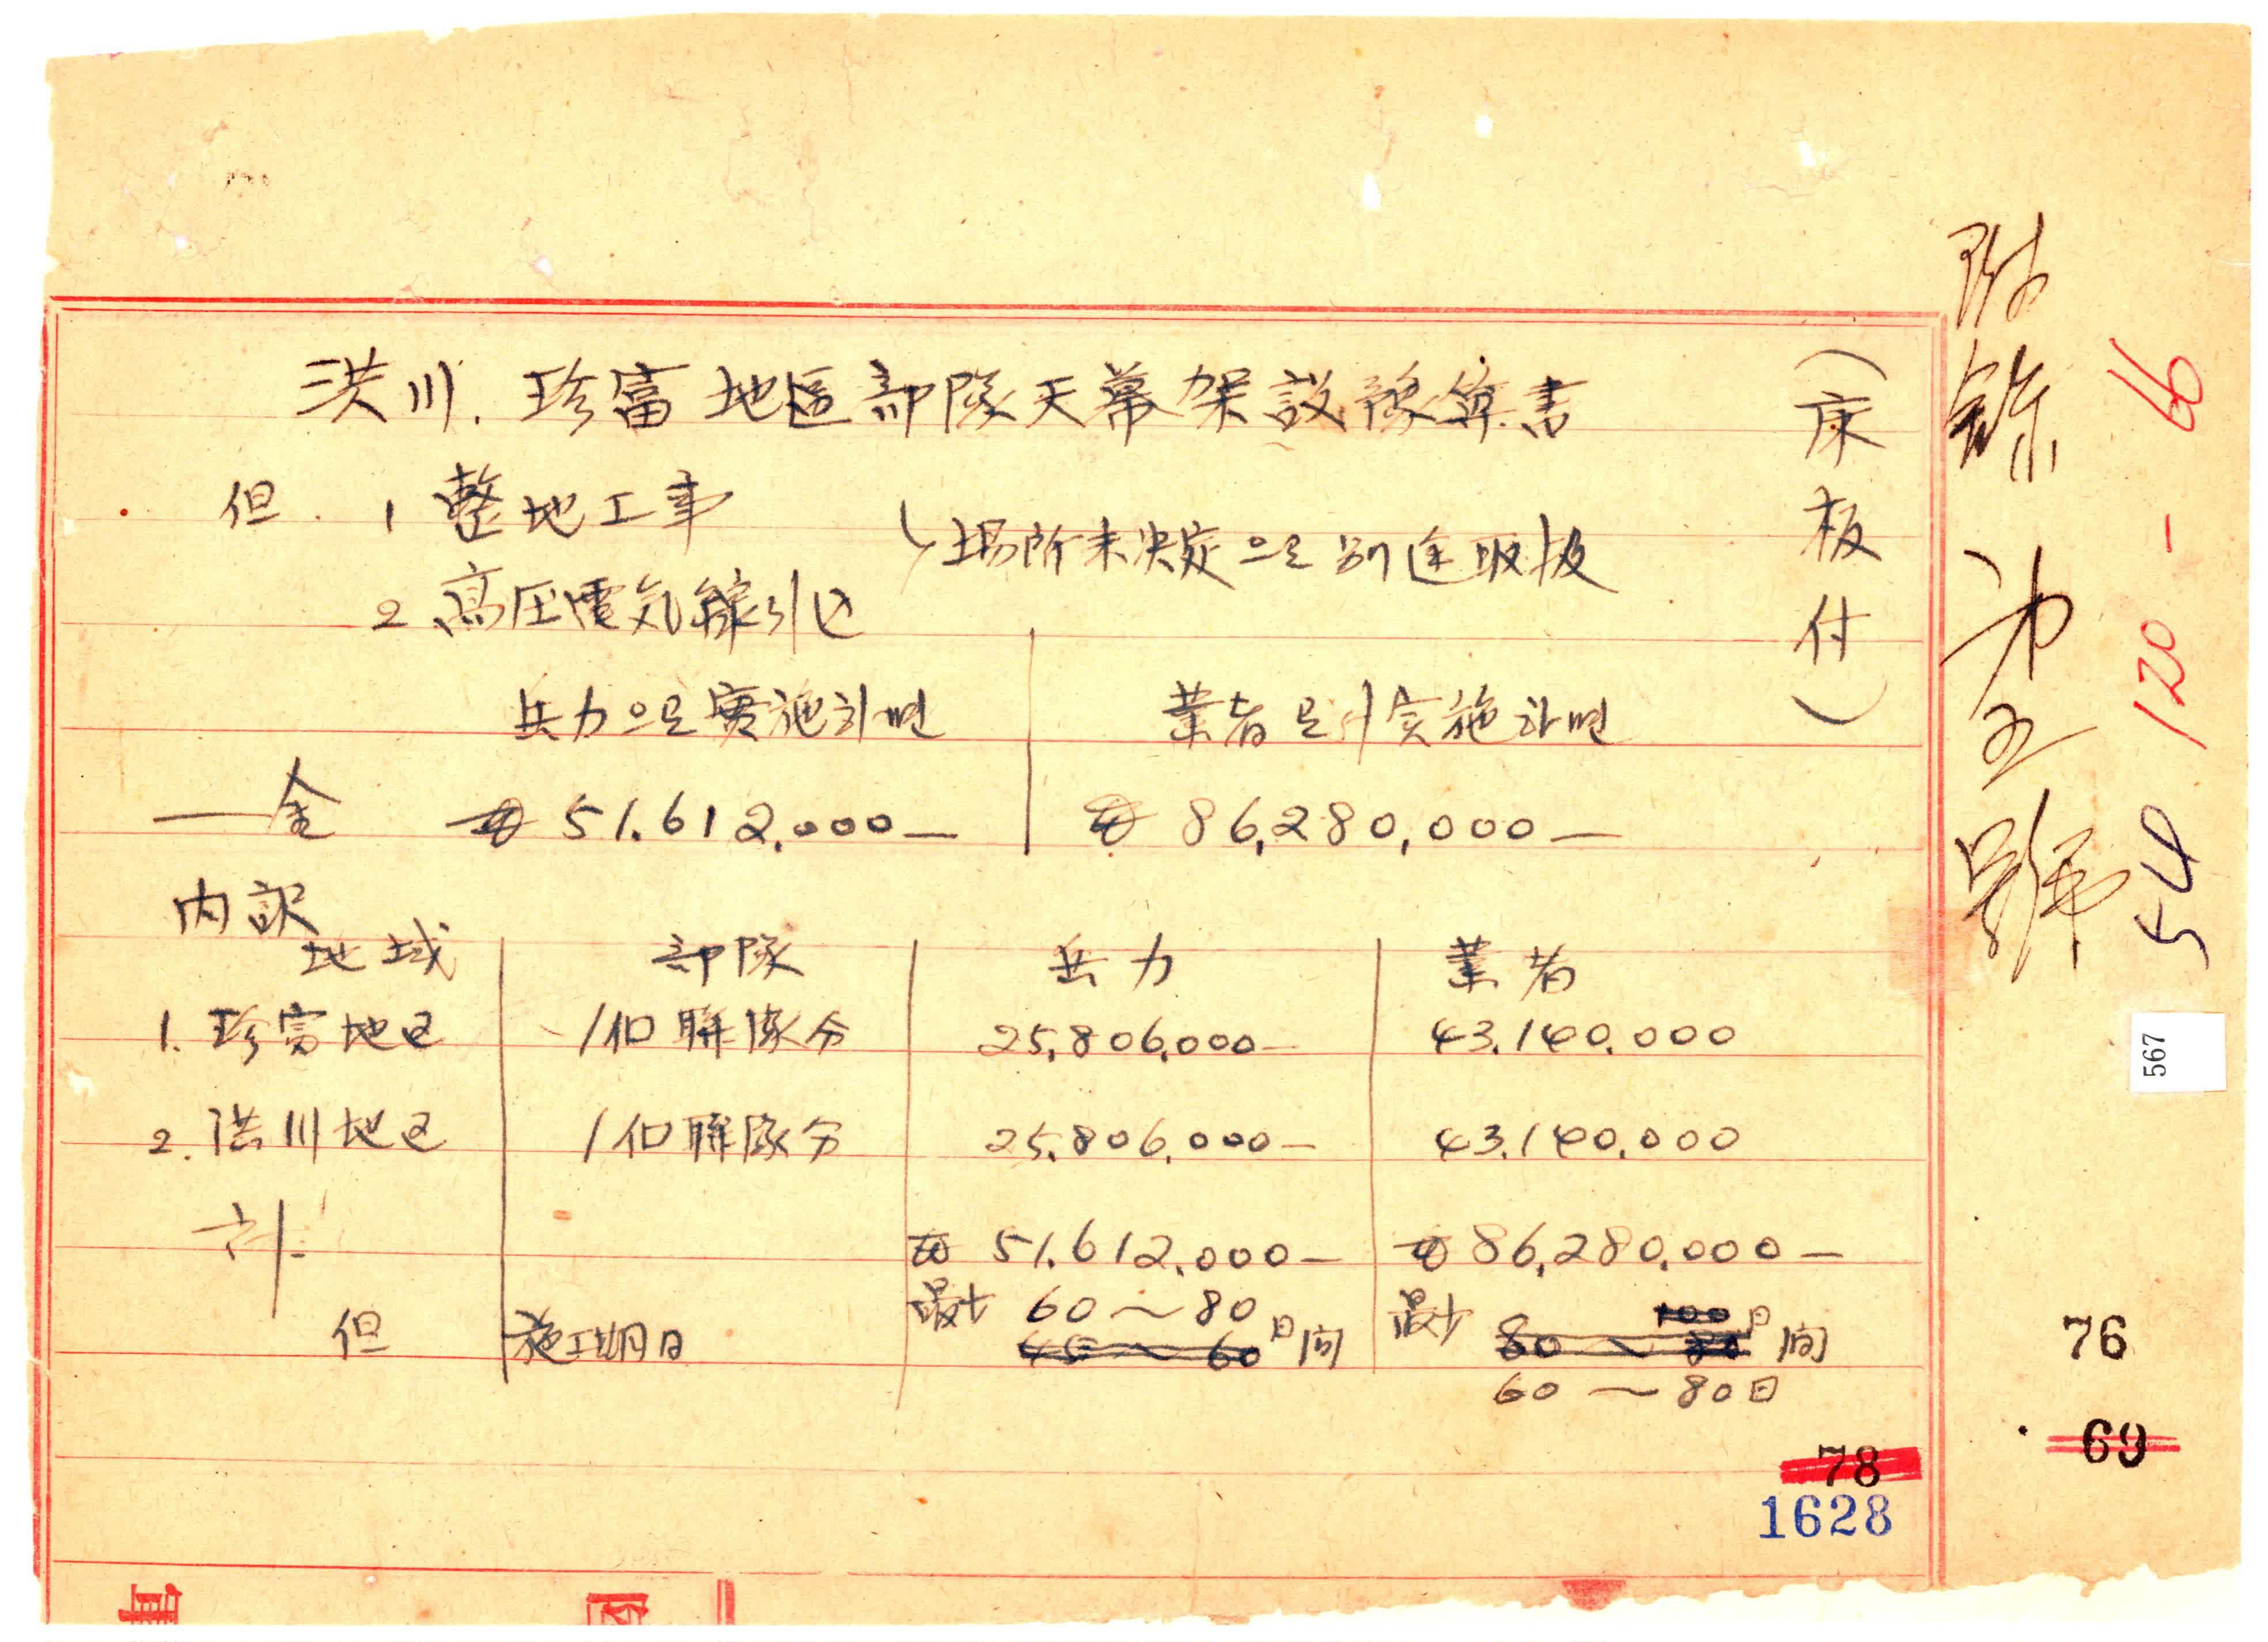 洪川. 珍富地區部隊天幕架設豫算書
(床板付)
但. 1 整地工事
場所未決定으로 別途取扱
2. 高圧電気線引込
兵力으로 實施하면
業者로서 实施하면
一金 51.612.000—
86,280,000—
内訳
地域 部隊 兵力 業者
1. 珍富地区 1個聯隊分 25,806,000— 43.140.000
2. 洪川地区 1個聯隊分 25.806.000— 43.140.000
計 51.612.000— 86,280.000—
但 施工期日 最少 60~80 日間 最少 100 日間
45~60 80~80
60~80日
78
1628
附錄 第2號
54 120-66
567
76
69